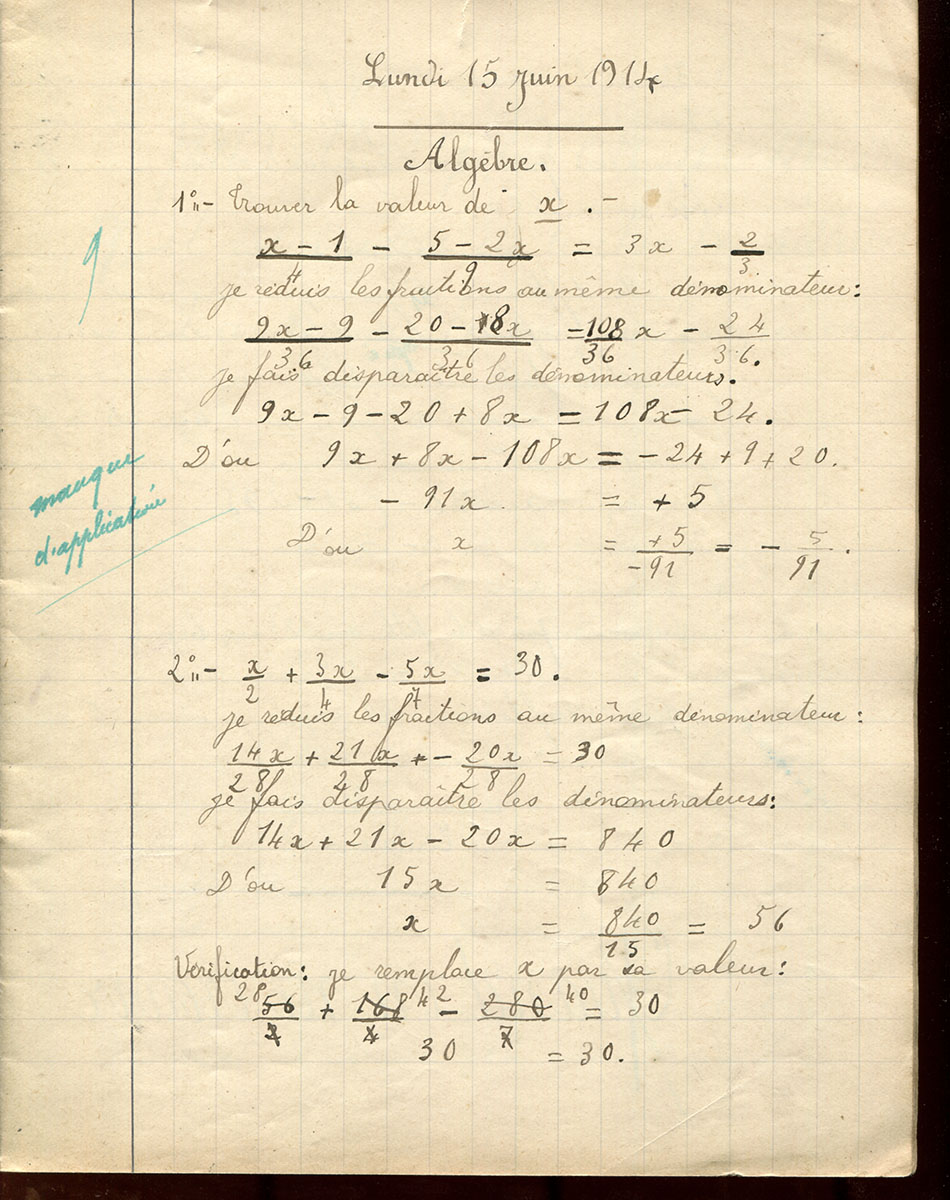 Lundi 15 juin 1914
Algèbre.
1°- Trouver la valeur de x . -
x - 1 / 4 - 5 - 2x / 9 = 3x - 2 / 3
je réduis les fractions au même dénominateur:
9x - 9 / 36 - 20 - 8x / 36 = 108 / 36 x - 24 / 36.
je fais disparaître les dénominateurs.
9x - 9 - 20 + 8x = 108x - 24.
D'ou 9x + 8x - 108x = - 24 + 9 + 20.
- 91x = + 5
D'ou x = +5 / -91 = - 5 / 91 .
9
manque
d'application
2°- x / 2 + 3x / 4 - 5x / 7 = 30.
je réduis les fractions au même dénominateur:
14x / 28 + 21x / 28 - 20x / 28 = 30
je fais disparaître les dénominateurs:
14x + 21x - 20x = 840
D'ou 15x = 840
x = 840 / 15 = 56
Vérification: je remplace x par sa valeur:
28 56 / 2 + 168 / 4 42 - 280 / 7 40 = 30
30 = 30.